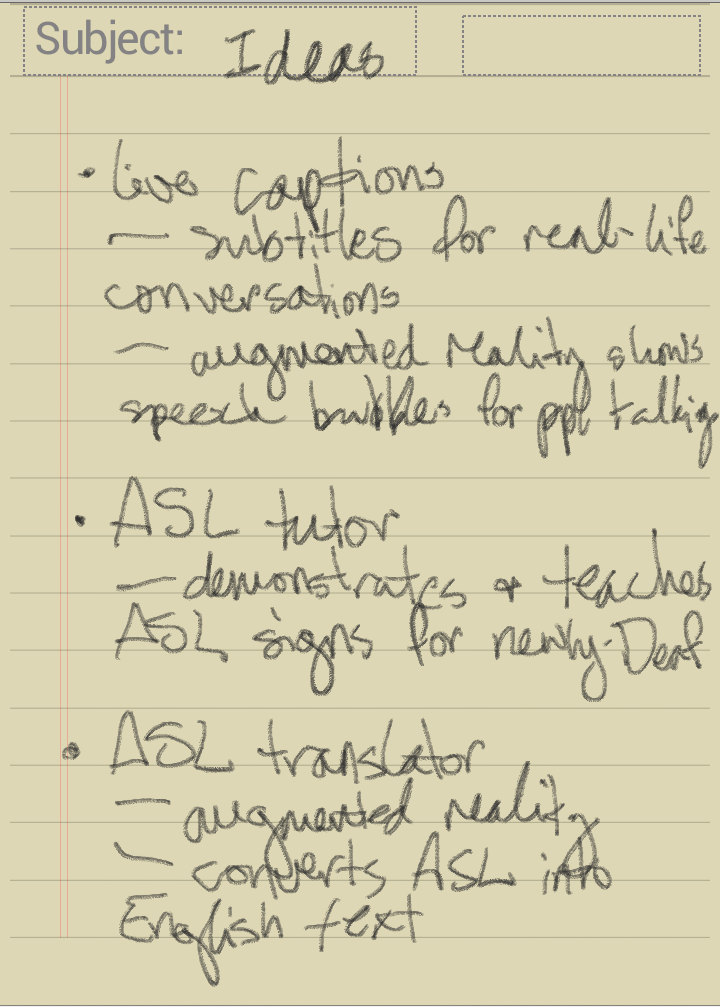 Subject: Ideas
• Live captions
— subtitles for real-life
conversations
— augmented reality shows
speech bubbles for ppl talking
• ASL tutor
— demonstrates & teaches
ASL signs for newly-Deaf
• ASL translator
— augmented reality
— converts ASL into
English text